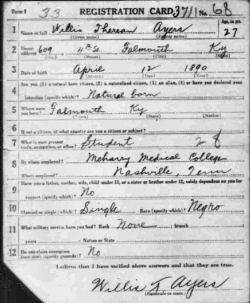 Form 1 33 REGISTRATION CARD 3711 No. 68
1 Name in full Willis Thereon Ayers Age, in yrs. 27
(Given name) (Family name)
2 Home address 609 4th St. Falmouth Ky
3 Date of birth April 12 1890
4 Are you (1) a natural-born citizen, (2) a naturalized citizen, (3) an alien, (4) or have you declared your
intention (specify which)? Natural born
5 Where were you born? Falmouth Ky
6 If not a citizen, of what country are you a citizen or subject?
7 What is your present trade, occupation, or office? Student 28
8 By whom employed? Meharry Medical College
Where employed? Nashville, Tenn
9 Have you a father, mother, wife, child under 12, or a sister or brother under 12, solely dependent on you for
support (specify which)? No
10 Married or single (which)? Single Race (specify which)? Negro
11 What military service have you had? Rank None ; branch
years ; Nation or State
12 Do you claim exemption from draft (specify grounds)? No
I affirm that I have verified above answers and that they are true.
Willis T Ayers
(Signature or mark)